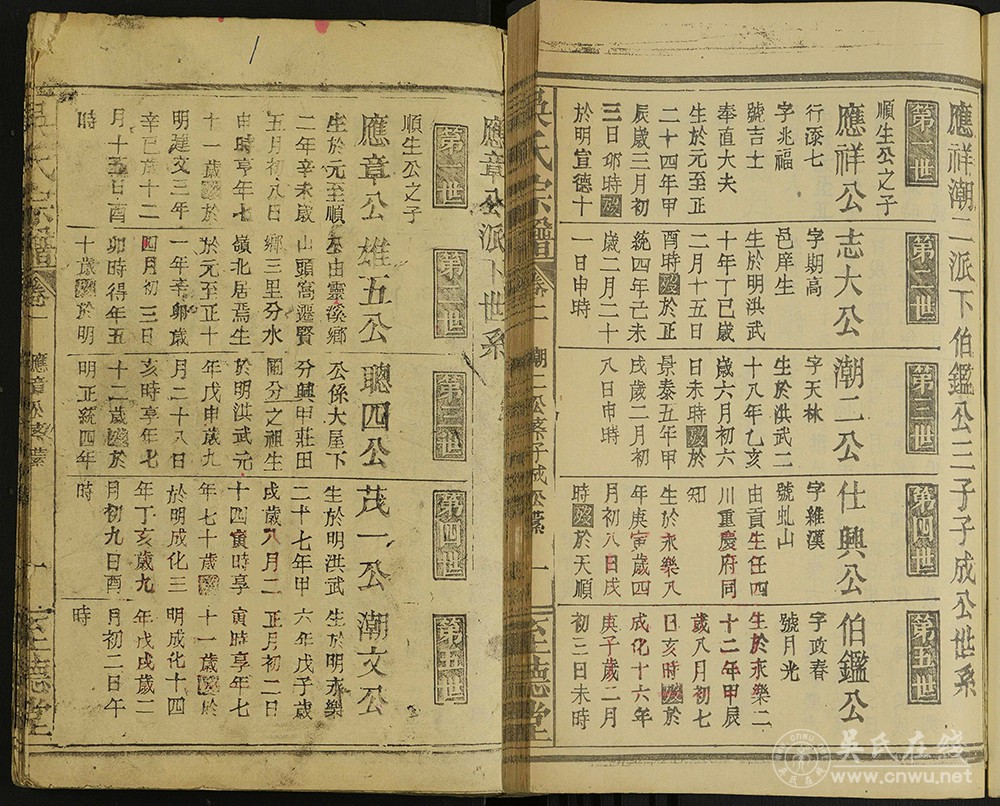 應祥潮二派下伯鑑公三子子成公世系
第一世
應祥公
順生公之子
行添七
字兆福
號吉士
奉直大夫
生於元至正
二十四年甲
辰歲三月初
三日卯時歿
於明宣德十
一日申時
第二世
志大公
字期高
邑庠生
生於明洪武
十年丁巳歲
二月十五日
酉時歿於正
統四年亡未
歲二月二十
第三世
潮二公
字天林
生於洪武二
十八年乙亥
歲六月初六
日未時歿於
景泰五年甲
戌歲二月初
八日申時
第四世
仕興公
字維漢
號虬山
由貢生任四
川重慶府同
知
生於永樂八
年庚寅歲四
月初八日戌
時歿於天順
第五世
伯鑑公
字政春
號月光
生於永樂二
十二年甲辰
歲八月初七
日亥時歿於
成化十六年
庚子歲二月
初三日未時
吳氏宗譜
卷一
潮二公系子成公系
一
至德堂
應章公派下世系
第一世
應章公
順生公之子
生於元至順
二年辛未歲
五月初八日
申時享年七
十一歲歿於
明建文三年
辛巳歲十二
月十五日酉
時
第二世
雄五公
由靈溪鄉
山頭窩遷賢
鄉三里分水
嶺北居焉生
於元至正十
一年辛卯歲
四月初三日
卯時得年五
十歲歿於明
第三世
聰四公
公係大屋下
分興甲莊田
圍分之祖生
於明洪武元
年戊申歲九
月二十八日
亥時享年七
十二歲歿於
明正統四年
時
第四世
茂一公
生於明洪武
二十七年甲
戌歲八月二
十四寅時享
年七十歲歿
於明成化三
年丁亥歲九
月初九日酉
時
第五世
潮文公
生於明永樂
六年戊子歲
正月初二日
寅時享年七
十一歲歿於
明成化十四
年戊戌歲二
月初二日午
時
吳氏宗譜
卷一
應章公系
一
至德堂
吳氏在线
www.cnwu.net